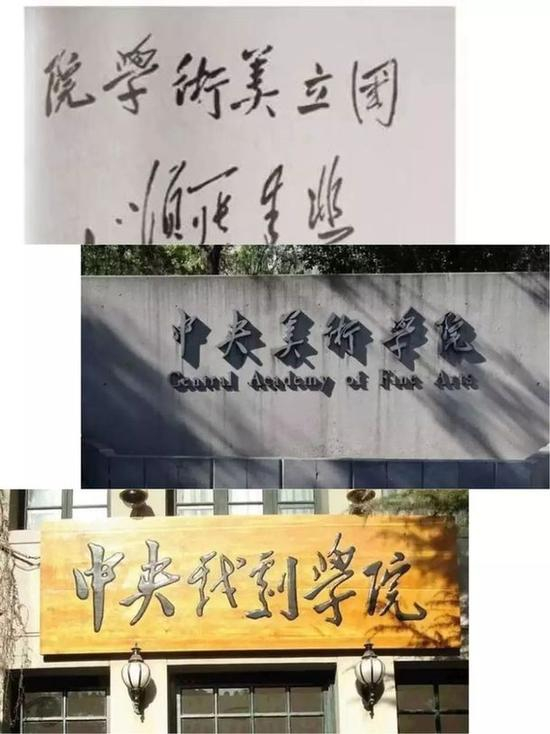 国立美術學院
中央美術學院
Central Academy of Fine Arts
中央戏剧學院